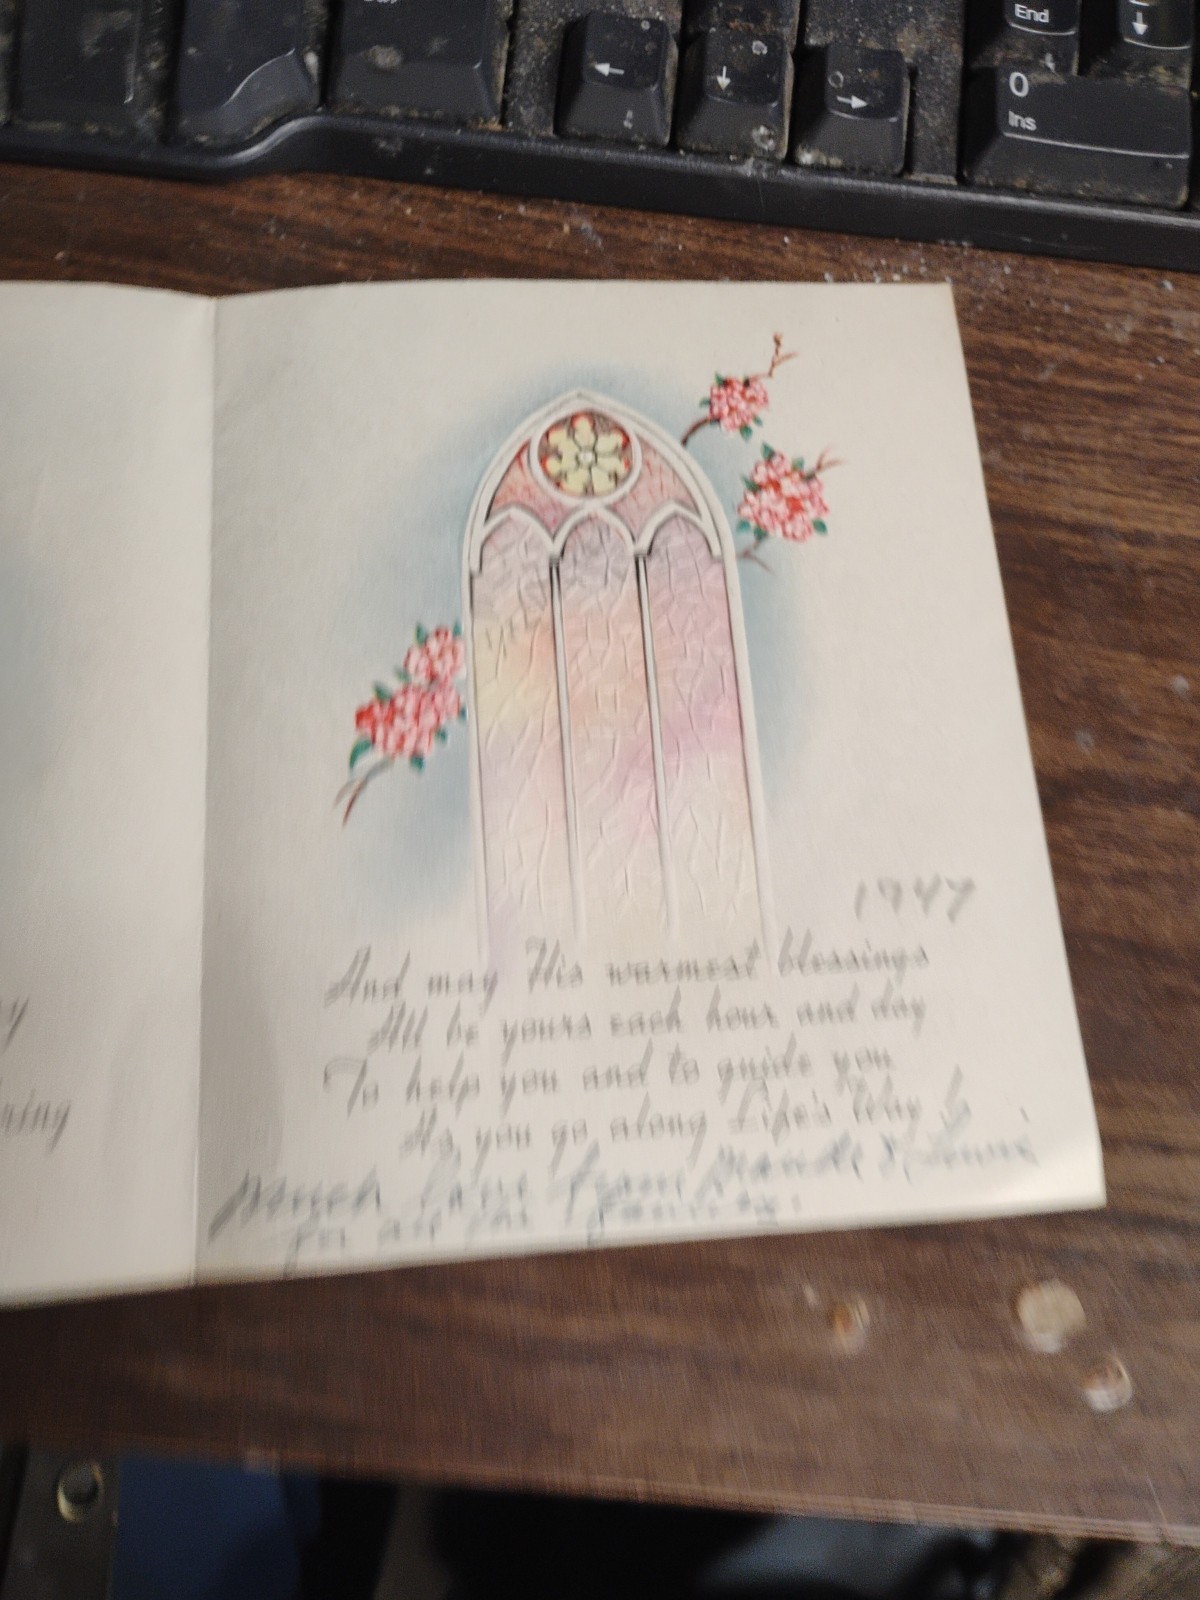 End
0
Ins
1947
And may His warmest blessings
All be yours each hour and day
To help you and to guide you
As you go along Life's Way
Much love from Maude & Lewis
for all the family.